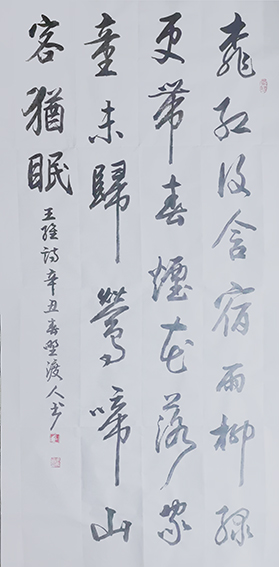 桃红复含宿雨柳绿
更带春烟花落家
童未歸莺啼山
客猶眠
王维诗辛丑春野渡人书